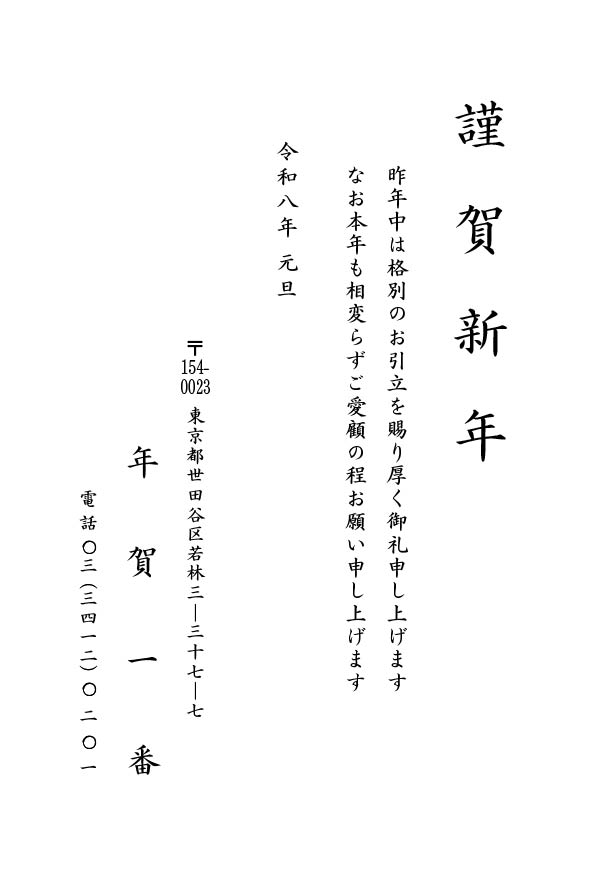 謹賀新年
昨年中は格別のお引立を賜り厚く御礼申し上げます
なお本年も相変らずご愛顧の程お願い申し上げます
令和八年 元旦
〒154-0023 東京都世田谷区若林三―三十七―七
年賀一番
電話〇三(三四一二)〇二〇一